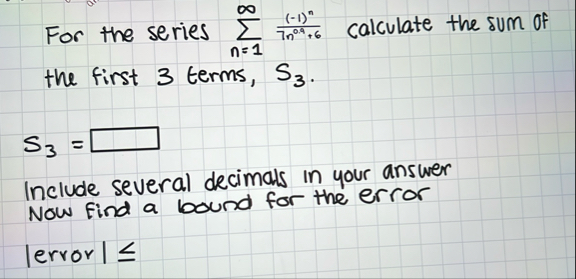 For the series ∞ ∑ n=1 (-1)ⁿ / 7n^0.9+6 calculate the sum of
the first 3 terms, S₃.
S₃ =
Include several decimals in your answer
Now find a bound for the error
|error| ≤